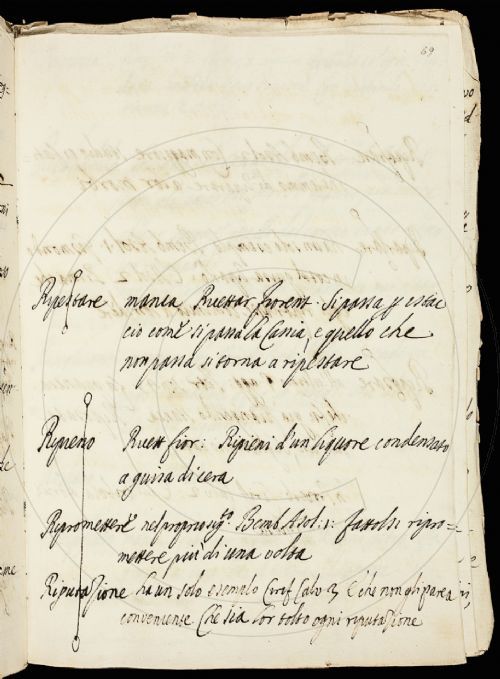 69
Ripestare manca Ricettar. fiorent. Si passa p estac
cio come si passa la Cassia, e quello che
non passa si torna a ripestare
Ripieno Ricett fior: Ripieni d'un liquore condensato
a guisa di cera
Ripromettere nel proprio sigto. Bemb Asol: 1: fattolsi ripro=
mettere più di una volta
Riputazione ha un solo esemplo Circf Calv 3 E che non gli parea
conveniente Che sia lor tolto ogni riputazione